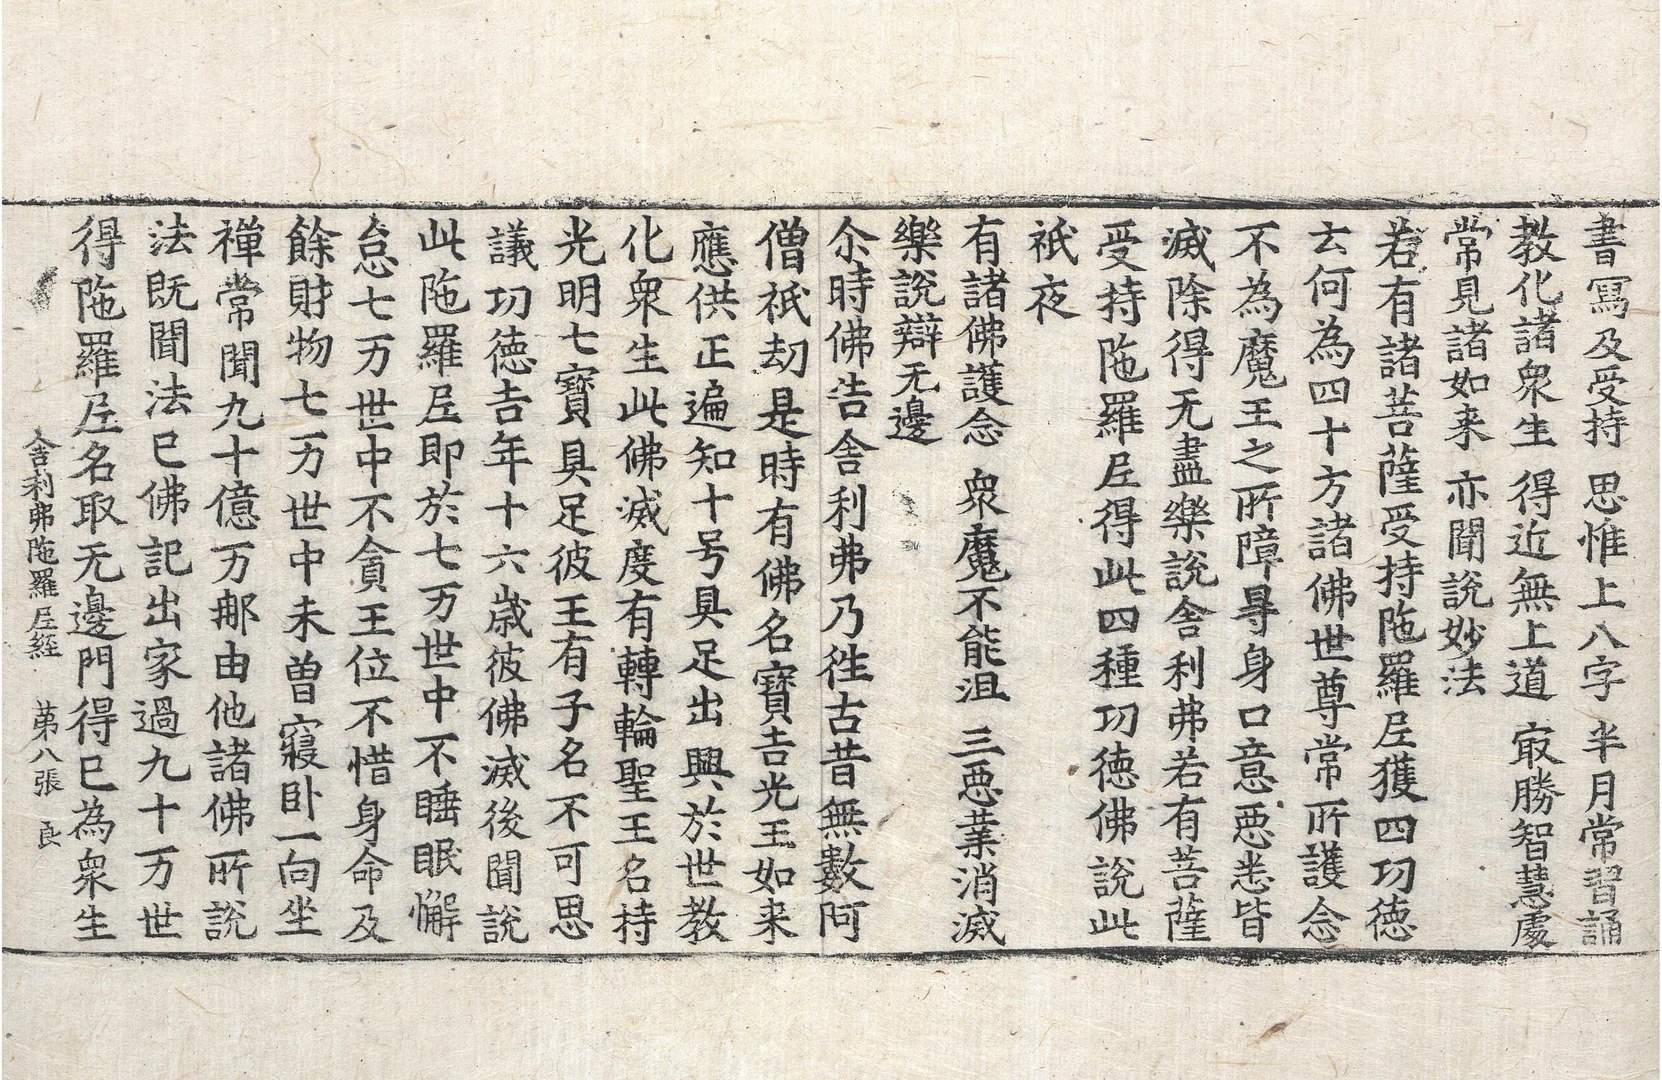 書寫及受持 思惟上八字 半月常習誦
教化諸衆生 得近無上道 㝡勝智慧處
常見諸如来 亦聞說妙法
若有諸菩薩受持陁羅尼獲四功徳
云何為四十方諸佛世尊常所護念
不為魔王之所障㝵身口意惡悉皆
滅除得无盡樂說舎利弗若有菩薩
受持陁羅尼得此四種功徳佛說此
祇夜
有諸佛護念 衆魔不能沮 三惡業消滅
樂說辯无邊
尒時佛告舎利弗乃徃古昔無數阿
僧祇劫是時有佛名寶吉光王如来
應供正遍知十号具足出興於世教
化衆生此佛滅度有轉輪聖王名持
光明七寶具足彼王有子名不可思
議功徳吉年十六歳彼佛滅後聞說
此陁羅尼即於七万世中不睡眠懈
怠七万世中不貪王位不惜身命及
餘財物七万世中未曽寢卧一向坐
禪常聞九十億万那由他諸佛所說
法既聞法已佛記出家過九十万世
得陁羅尼名取无邊門得已為衆生
舎利弗陁羅尼経 苐八張 良